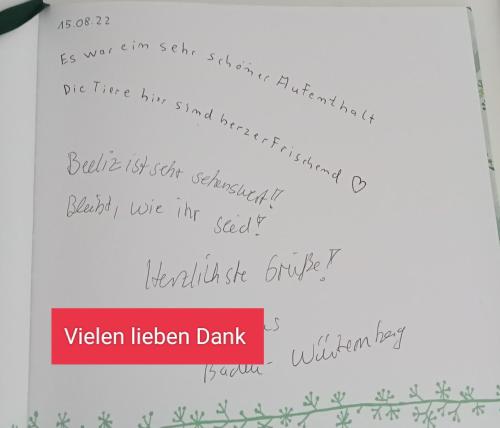 15.08.22
Es war ein sehr schöner Aufenthalt
Die Tiere hier sind herzerfrischend ♡
Beeliz ist sehr sehenswert!!
Bleibt, wie ihr seid!
Herzlichste Grüße!
Vielen lieben Dank
Baden-Würtemberg